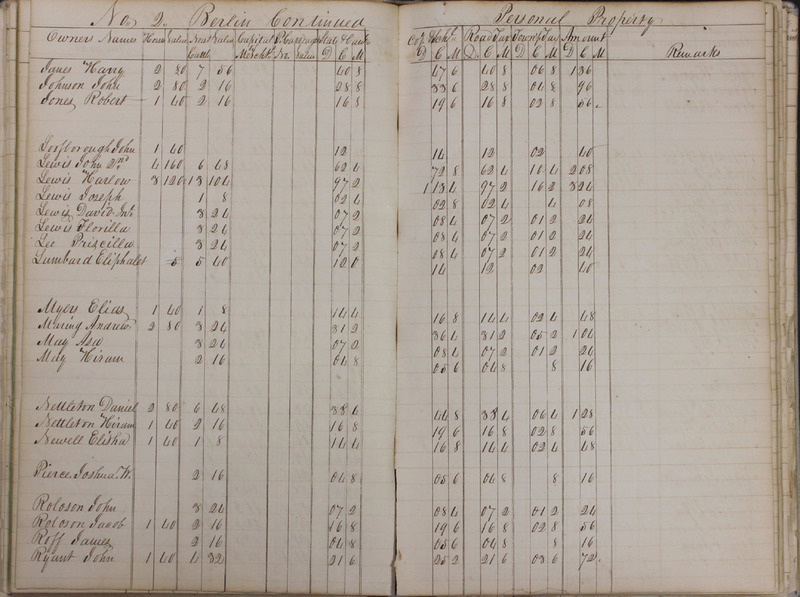 No. 2. Berlin Continued Personal Property
Owners Names Horses Value Neat Cattle Value Capital Merchts. P. Carriages No. Value State & Canal D C M Co. & Schl. D C M Road Tax D C M Township Tax D C M Amount D C M Remarks
James Harry 2 80 7 56 40 8 47 6 40 8 06 8 1 36
Johnson John 2 80 2 16 28 8 33 6 28 8 04 8 96
Jones Robert 1 40 2 16 16 8 19 6 16 8 02 8 56
Loofborough John 1 40 12 14 12 02 40
Lewis John 2nd 4 160 6 48 62 4 72 8 62 4 10 4 2 08
Lewis Harlow 3 120 13 104 97 2 1 13 4 97 2 16 2 3 24
Lewis Joseph 1 8 02 4 02 8 02 4 4 08
Lewis David Jnr. 3 24 07 2 08 4 07 2 01 2 24
Lewis Florilla 3 24 07 2 08 4 07 2 01 2 24
Lee Priscilla 3 24 07 2 08 4 07 2 01 2 24
Lumbard Eliphalet 5 40 12 0 14 12 02 40
Myers Elias 1 40 1 8 14 4 16 8 14 4 02 4 48
Mering Andrew 2 80 3 24 31 2 36 4 31 2 05 2 1 04
May Asa 3 24 07 2 08 4 07 2 01 2 24
May Hiram 2 16 04 8 05 6 04 8 8 16
Nettleton Daniel 2 80 6 48 38 4 44 8 38 4 06 4 1 28
Nettleton Hiram 1 40 2 16 16 8 19 6 16 8 02 8 56
Newell Elisha 1 40 1 8 14 4 16 8 14 4 02 4 48
Pierce Joshua W. 2 16 04 8 05 6 04 8 8 16
Roloson John 3 24 07 2 08 4 07 2 01 2 24
Roloson Jacob 1 40 2 16 16 8 19 6 16 8 02 8 56
Roff James 2 16 04 8 05 6 04 8 8 16
Ryant John 1 40 4 32 21 6 25 2 21 6 03 6 72